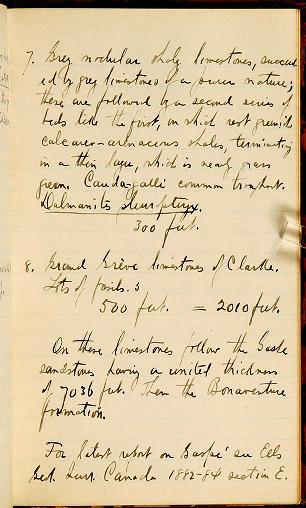 7. Grey nodular shaly limestones, succeed-
ed by grey limestones of a purer nature;
these are followed by a second series of
beds like the first, on which rest greenish
calcareo-arenaceous shales, terminating
in a thin layer, which is nearly grass
green. Cauda-galli common throughout.
Dalmanites pleuroptyx.
300 feet.
8. Grand Grève limestones of Clarke.
Lots of fossils.
500 feet. = 2010 feet.
On these limestones follow the Gaspé
sandstones having a united thickness
of 7036 feet. Then the Bonaventure
formation.
For latest report on Gaspé see Ells
Geol. Surv. Canada 1882-84 section E.